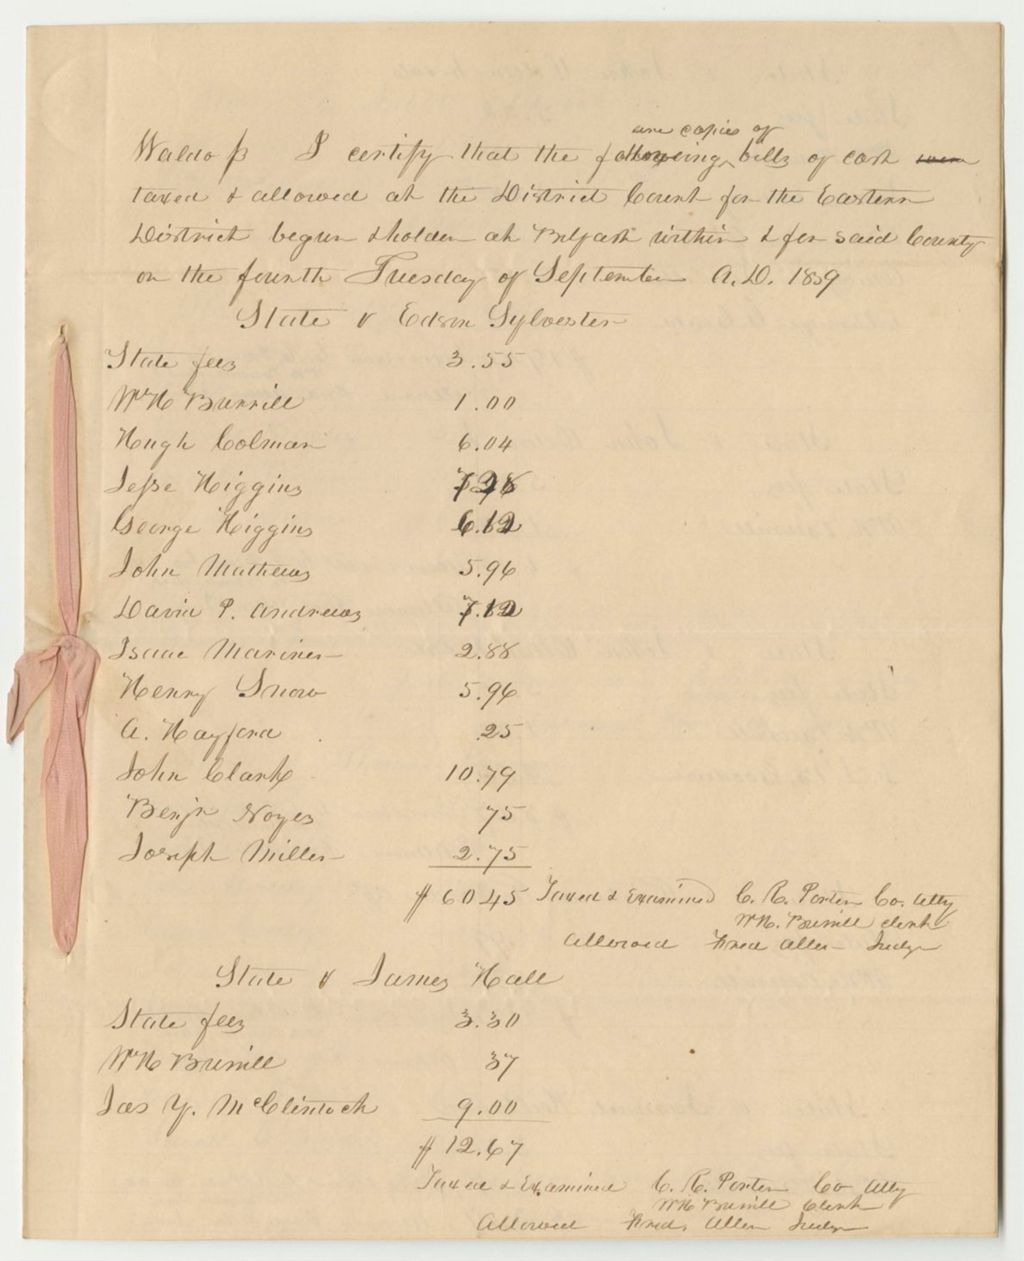 are copies of
Waldo ss I certify that the following bills of cost were
taxed & allowed at the District Court for the Eastern
District begun & holden at Belfast within & for said County
on the fourth Tuesday of September A.D. 1839
State v Edson Sylvester
State fees 3.55
Wm H Burrill 1.00
Hugh Colman 6.04
Jesse Higgins 7.28
George Higgins 6.12
John Mathews 5.96
David P. Andrews 7.12
Isaac Mariner 2.88
Henry Snow 5.96
A. Hayford .25
John Clark 10.79
Benjn Noyes 75
Joseph Miller 2.75
$60.45 Taxed & Examined C. R. Porter Co. Atty
Wm H. Burrill Clerk
Allowed Fred Allen Judge
State v James Hall
State fees 3.30
Wm H Burrill 37
Jas Y. McClintock 9.00
$12.67
Taxed & Examined C. R. Porter Co Atty
Wm H Burrill Clerk
Allowed Fredk Allen Judge